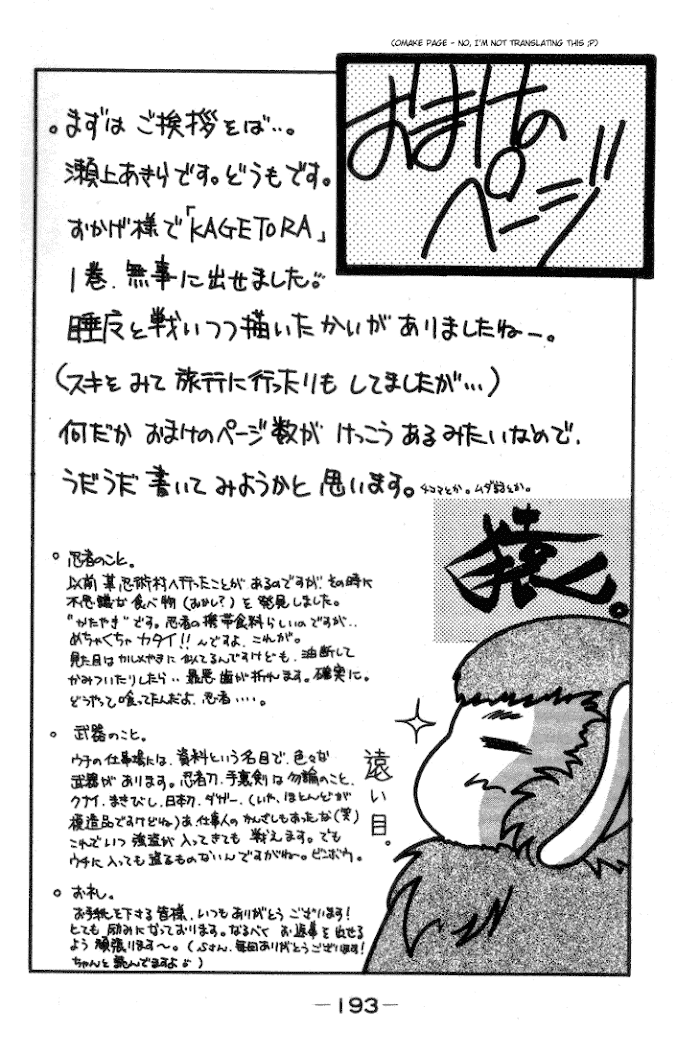 (OMAKE PAGE - NO, I'M NOT TRANSLATING THIS ;P)
おまけの
ページ!!
。まずは ご挨拶をば…。
瀬上あきらです。どうもです。
おかげ様で「KAGETORA」
1巻、無事に出せました。
睡魔と戦いつつ描いたかいが ありましたねー。
(スキを みて 旅行に行ったりも してましたが…)
何だか おまけのページ数が けっこう あるみたいなので、
うだうだ 書いて みようかと 思います。4コマとか。ムダ話とか。
猿。
。忍者のこと。
以前 某忍術村へ行ったことが あるのですが、その時に
不思議な 食べ物(おかし?)を 発見しました。
"かたやき"です。忍者の携帯食料らしいのですが‥
めちゃくちゃ カタイ!!んですよ、これが。
見た目は カルメやきに 似てるんですけども、油断して
かみついたりしたら‥最悪 歯が折れます。確実に。
どうやって喰ってたんだよ、忍者‥‥。
。武器のこと。
ウチの仕事場には、資料という名目で、色々な
武器が あります。忍者刀、手裏剣は勿論のこと、
クナイ、まきびし、日本刀、ダガー、(いや、ほとんどが
模造品ですけどね)あ、仕事人の かんざしもあったな(笑)
これでいつ 強盗が 入ってきても 戦えます。でも
ウチに入っても盗るものないんですがねー。ビンボウ。
遠い目。
。お礼。
お手紙を下さる皆様、いつもありがとう ございます!
とても 励みになっております。なるべく お返事を出せる
よう 頑張ります〜。(Sさん、毎回ありがとうございます!
ちゃんと読んでますよ)
—193—